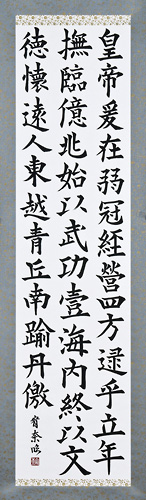 皇帝爰在弱冠経營四方逮乎立年
撫臨億兆始以武功壹海內終以文
徳懷遠人東越青丘南踰丹儌